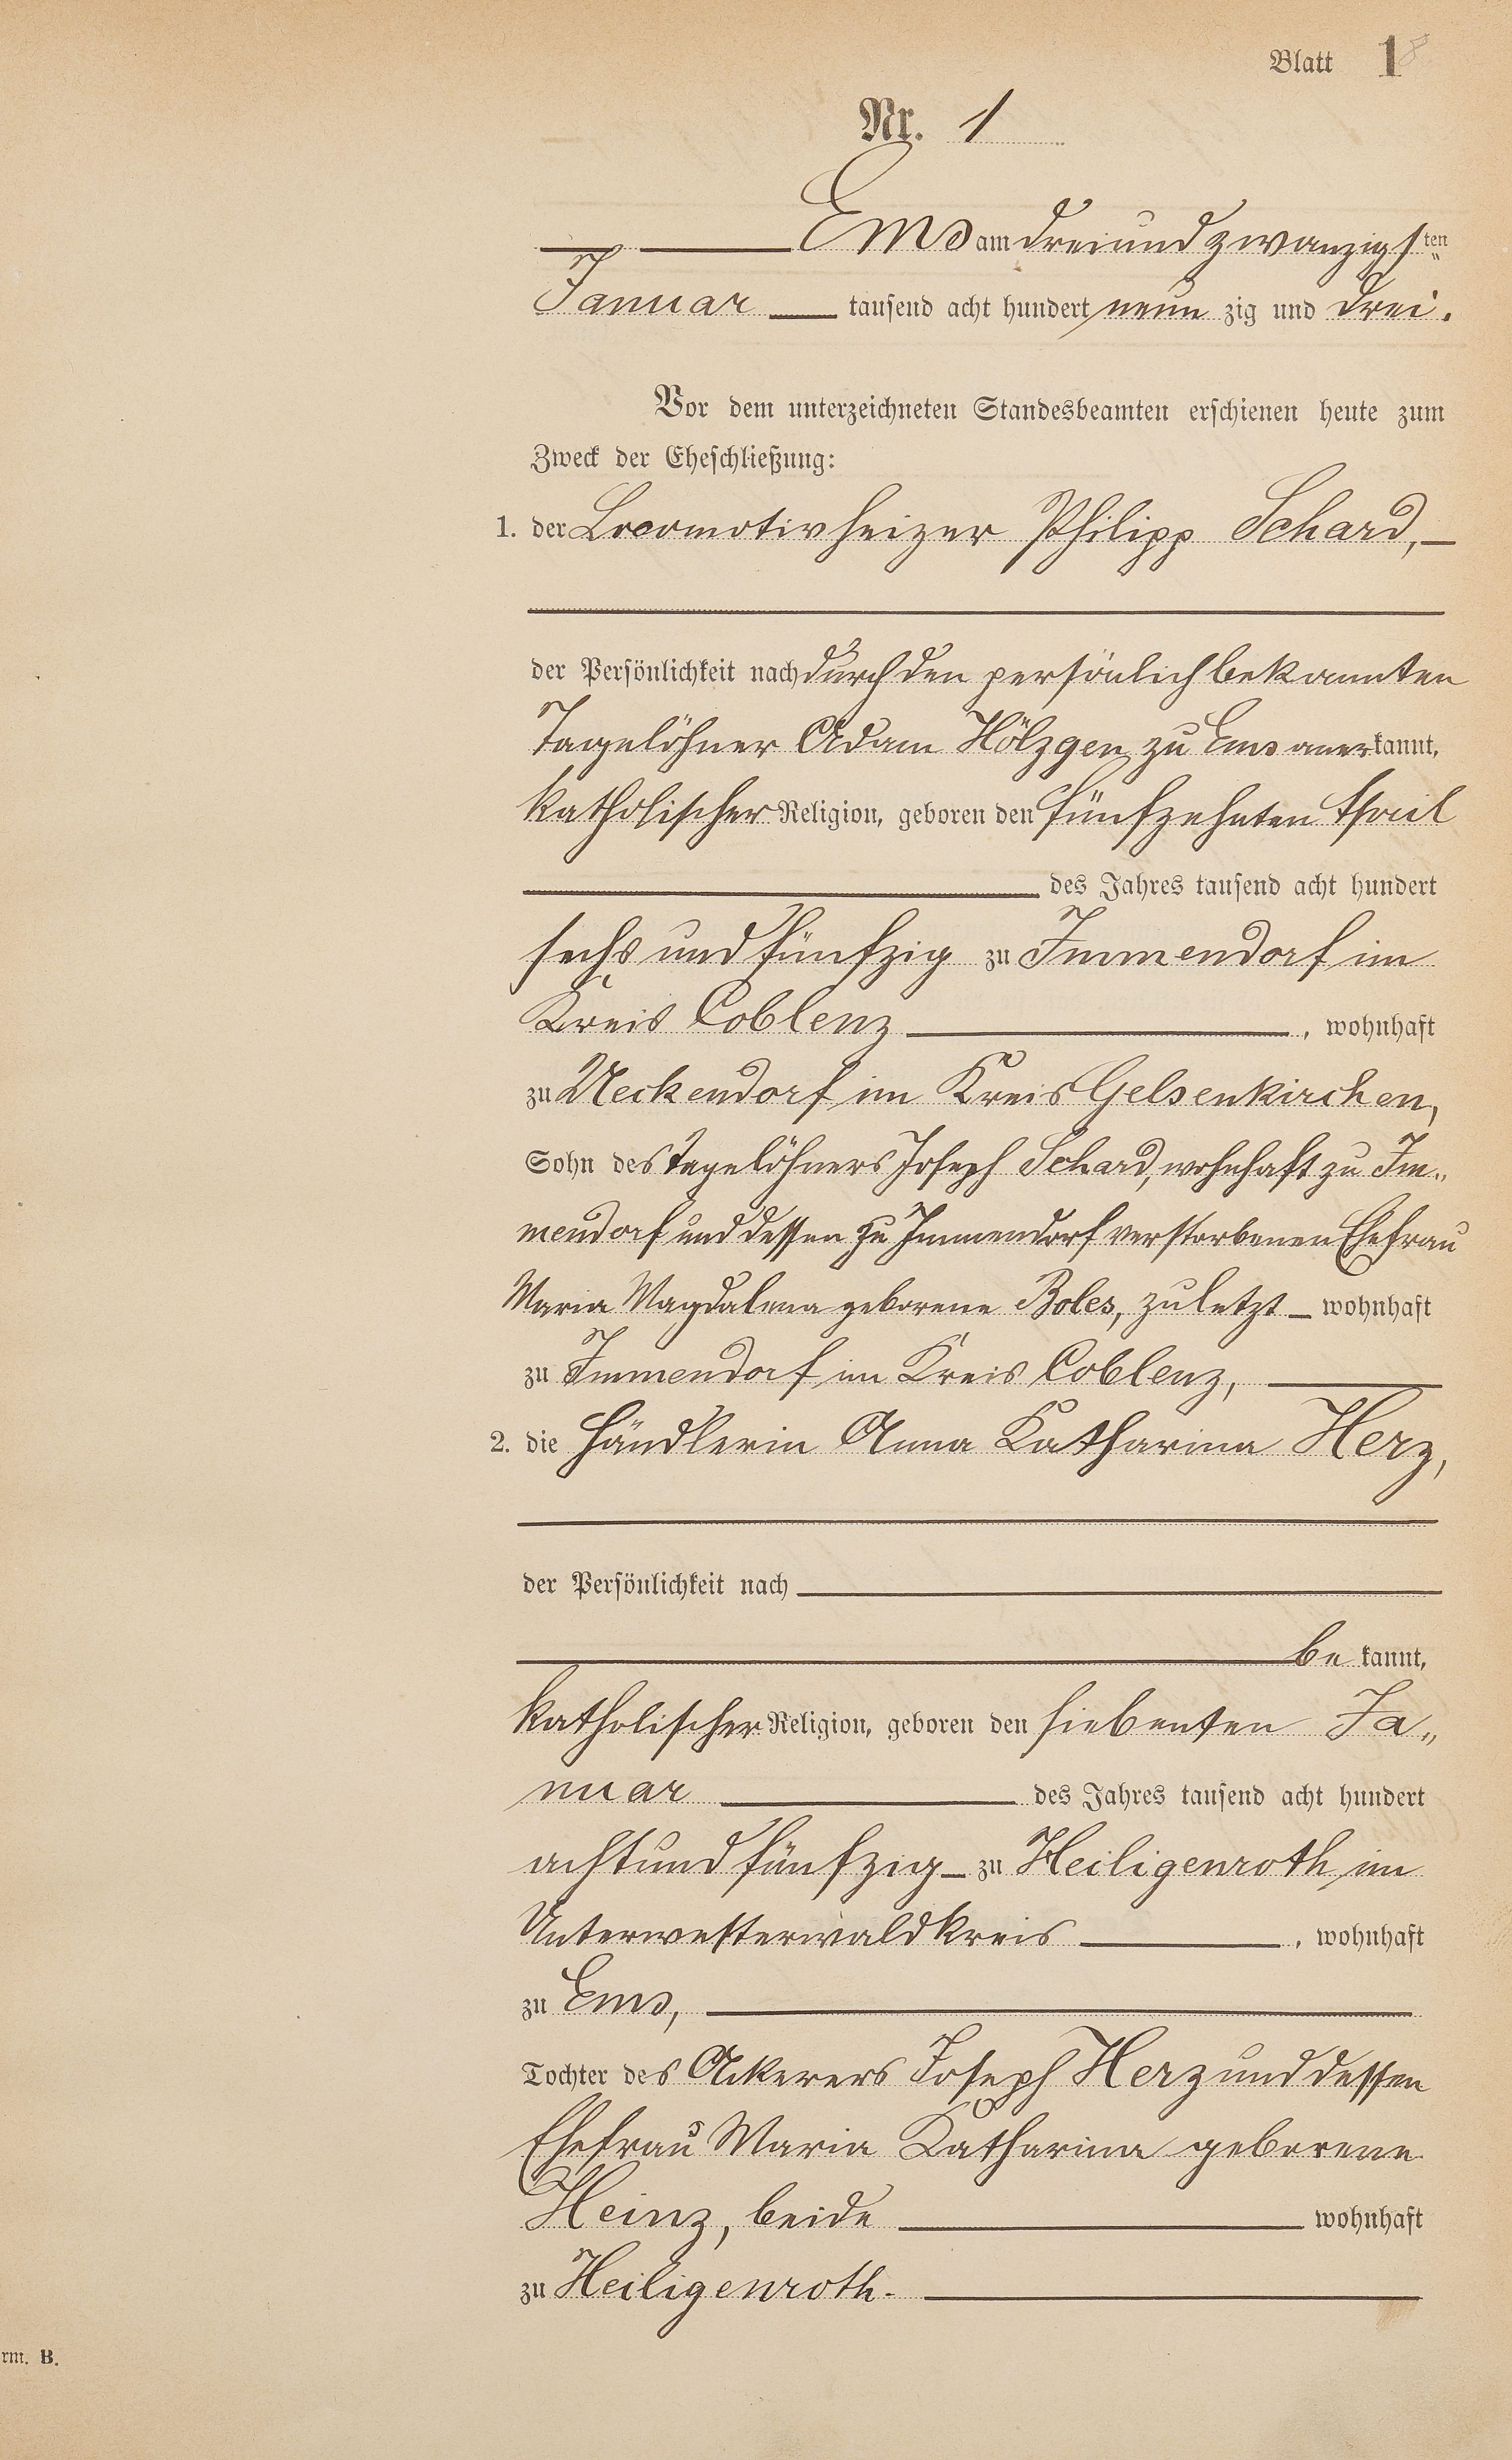 Blatt 1 8
Nr. 1
Ems am dreiundzwanzigsten
Januar tausend acht hundert neun zig und drei.
Vor dem unterzeichneten Standesbeamten erschienen heute zum
Zweck der Eheschließung:
1. der Locomotivheizer Philipp Schard,
der Persönlichkeit nach durch den persönlich bekannten
Tagelöhner Adam Hölzgen zu Ems anerkannt,
katholischer Religion, geboren den fünfzehnten April
des Jahres tausend acht hundert
sechs und fünfzig zu Immendorf im
Kreis Coblenz, wohnhaft
zu Ueckendorf im Kreis Gelsenkirchen,
Sohn des Tagelöhners Joseph Schard, wohnhaft zu Im„
mendorf und dessen zu Immendorf verstorbenen Ehefrau
Maria Magdalena geborene Boles, zuletzt wohnhaft
zu Immendorf im Kreis Coblenz,
2. die Händlerin Anna Katharina Herz,
der Persönlichkeit nach
be kannt,
katholischer Religion, geboren den siebenten Ja„
nuar des Jahres tausend acht hundert
achtund fünfzig zu Heiligenroth im
Unterwesterwaldkreis, wohnhaft
zu Ems,
Tochter des Ackerers Joseph Herz und dessen
Ehefrau Maria Katharina geborene
Heinz, beide wohnhaft
zu Heiligenroth.
rm. B.